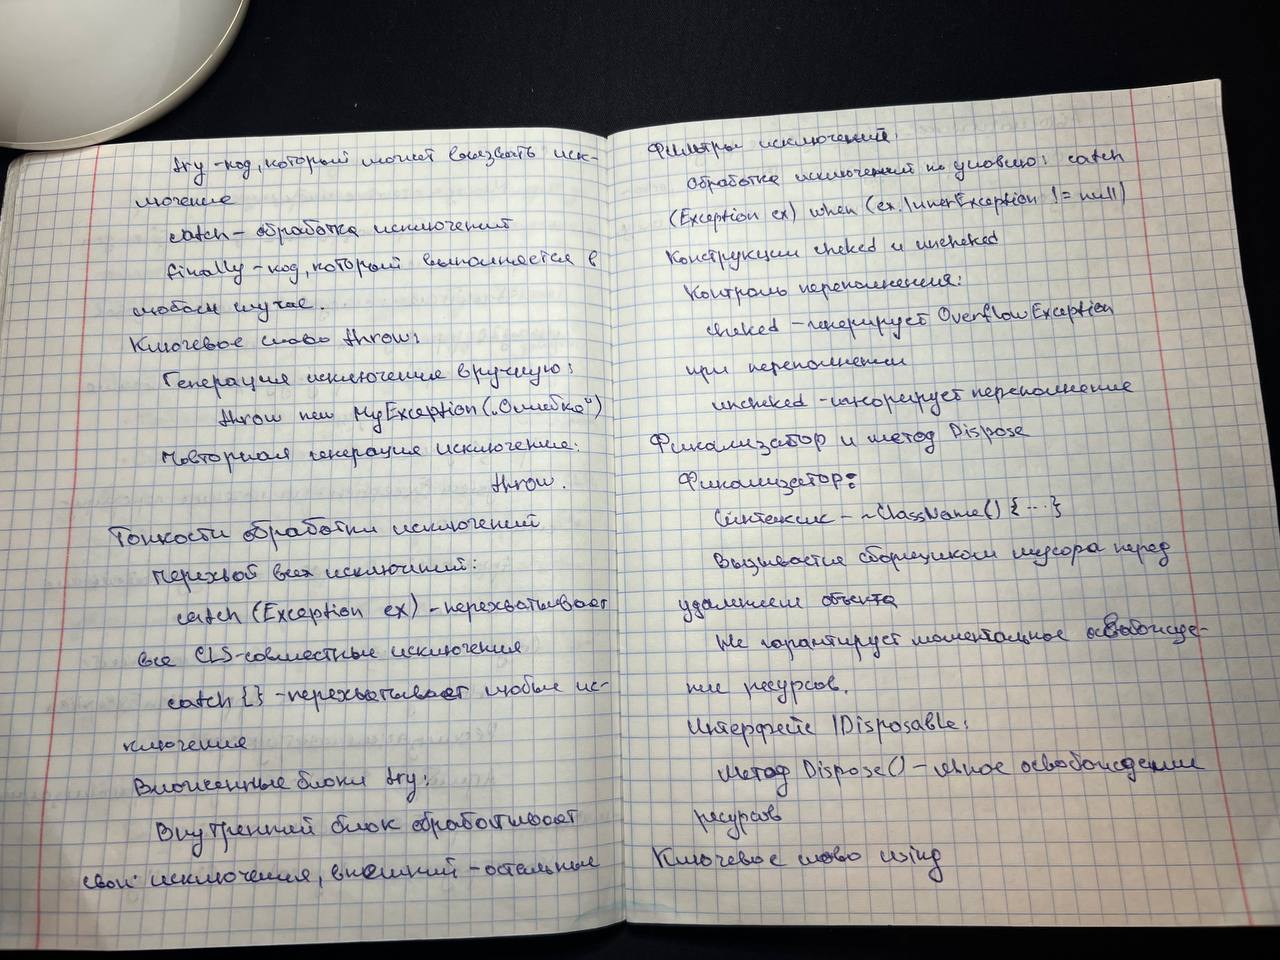 try - код, который может вызвать иск-
лючение
catch - обработка исключений
finally - код, который выполняется в
любом случае.
Ключевое слово throw:
Генерация исключение вручную:
throw new MyException(„Ошибка“)
Повторная генерация исключение:
throw.
Тонкости обработки исключений
Перехват всех исключений:
catch (Exception ex) - перехватывает
все CLS-совместные исключения
catch {} - перехватывает любые ис-
ключения
Вложенные блоки try:
Внутренний блок обрабатывает
свои исключения, внешний - остальные
Фильтры исключений:
Обработка исключений по условию: catch
(Exception ex) when (ex.InnerException != null)
Конструкции cheked и uncheked
Контроль переполнения:
cheked - генерирует OverflowException
при переполнении
uncheked - игнорирует переполнение
Финализатор и метод Dispose
Финализатор:
Синтаксис - ~ClassName() {...}
Вызывается сборщиком мусора перед
удалением объекта
Не гарантирует моментальное освобожде-
ние ресурсов.
Интерфейс IDisposable:
Метод Dispose() - явное освобождении
ресурсов
Ключевое слово using